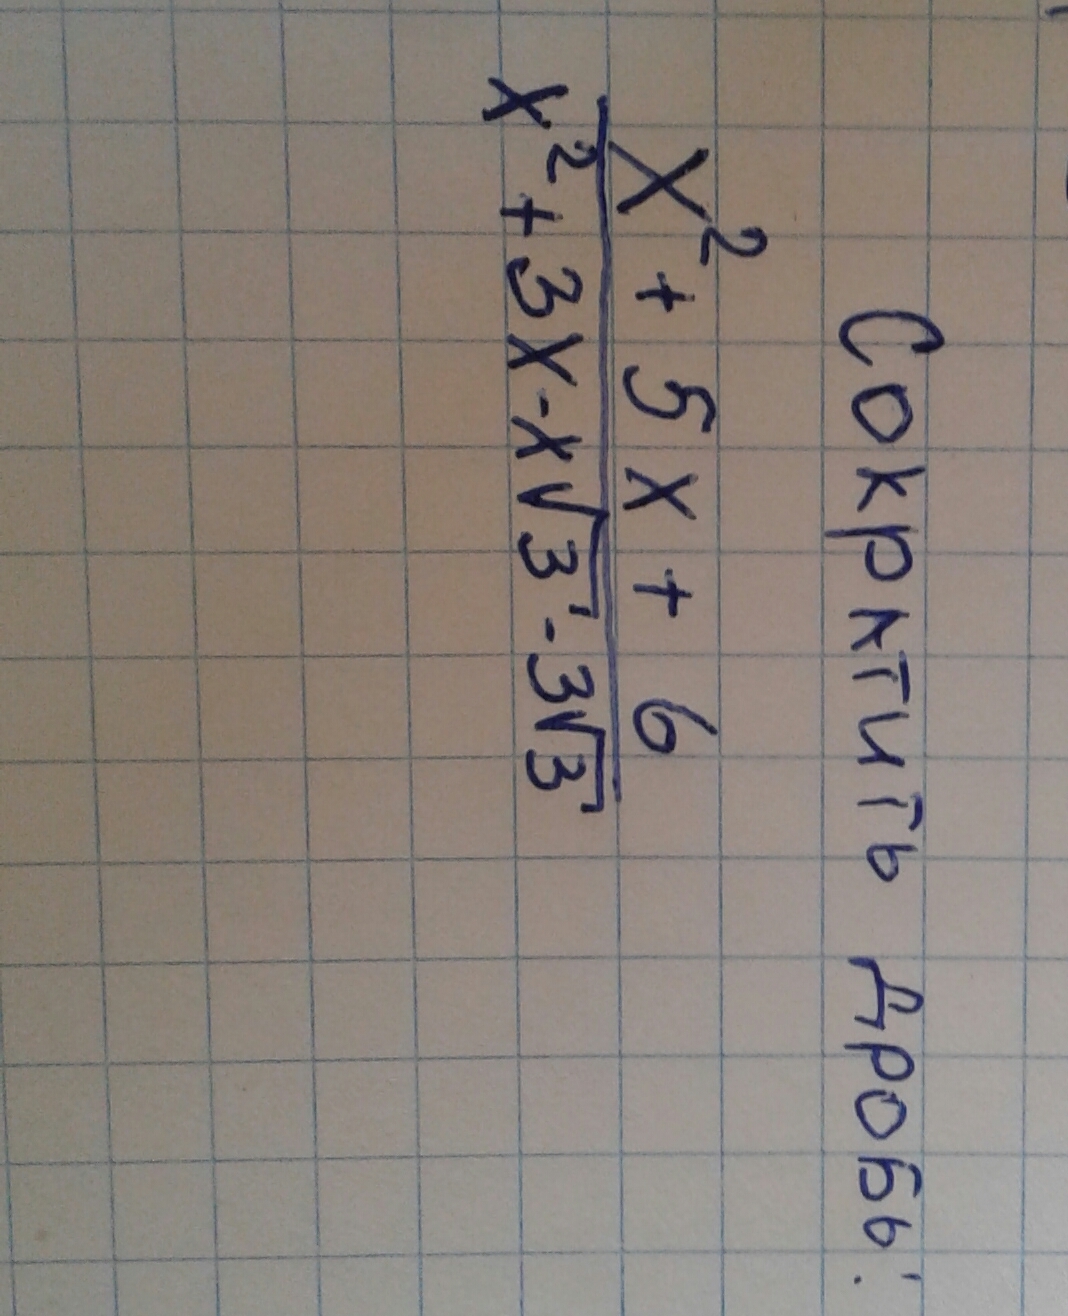 Сократить дробь:
x² + 5x + 6
x² + 3x - x√3 - 3√3